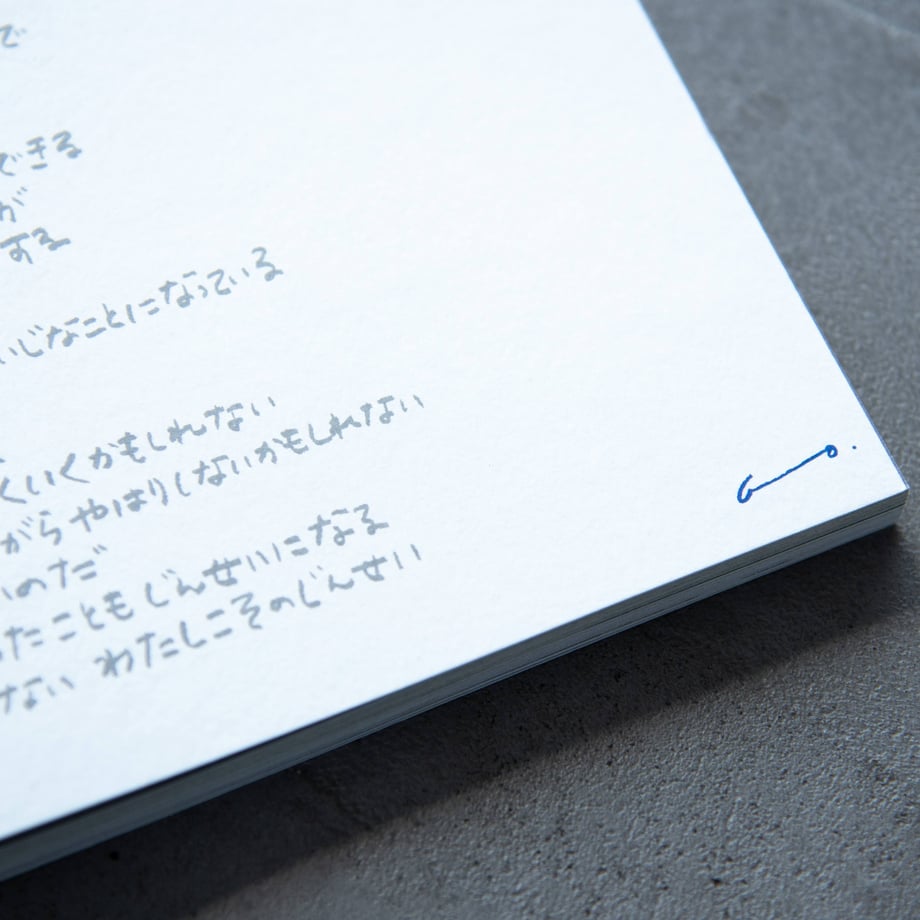 で
できる
が
する
いじなことになっている
くいくかもしれない
がらやはりしないかもしれない
いのだ
たこともじんせいになる
ない わたしこそのじんせい